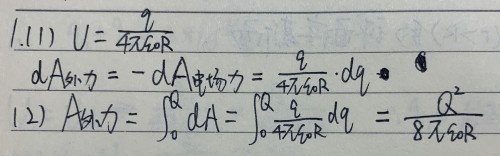 1.(1) U = \frac{q}{4πε0R}
dA外力 = -dA电场力 = \frac{q}{4πε0R}·dq.
(2) A外力 = ∫_0^Q dA = ∫_0^Q \frac{q}{4πε0R} dq = \frac{Q^2}{8πε0R}